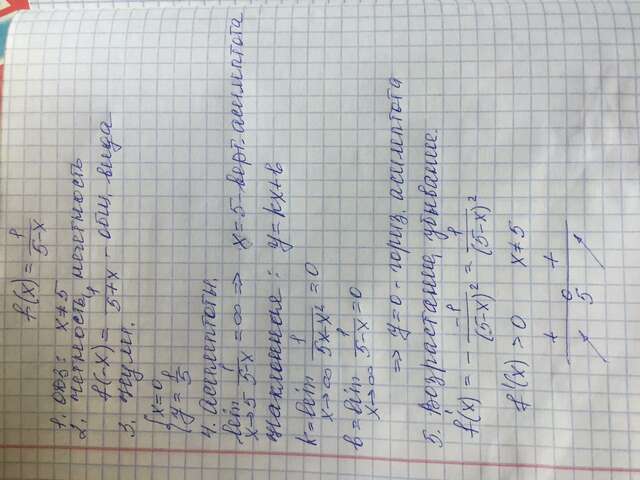 f(x) = 1/(5-x)
1. ОДЗ: x≠5
2. четность, нечетность
f(-x) = 1/(5+x) - общ. вида
3. нули.
{x=0
{y=1/5
4. Асимптоты.
lim x→5 1/(5-x) = ∞ ⇒ x=5 - верт. асимптота
наклонная: y=kx+b
k = lim x→∞ 1/(5x-x²) = 0
b = lim x→∞ 1/(5-x) = 0
⇒ y=0 - гориз. асимптота
5. Возрастание, убывание.
f(x) = - -1/(5-x)² = 1/(5-x)²
f'(x) > 0 x≠5
+ +
5